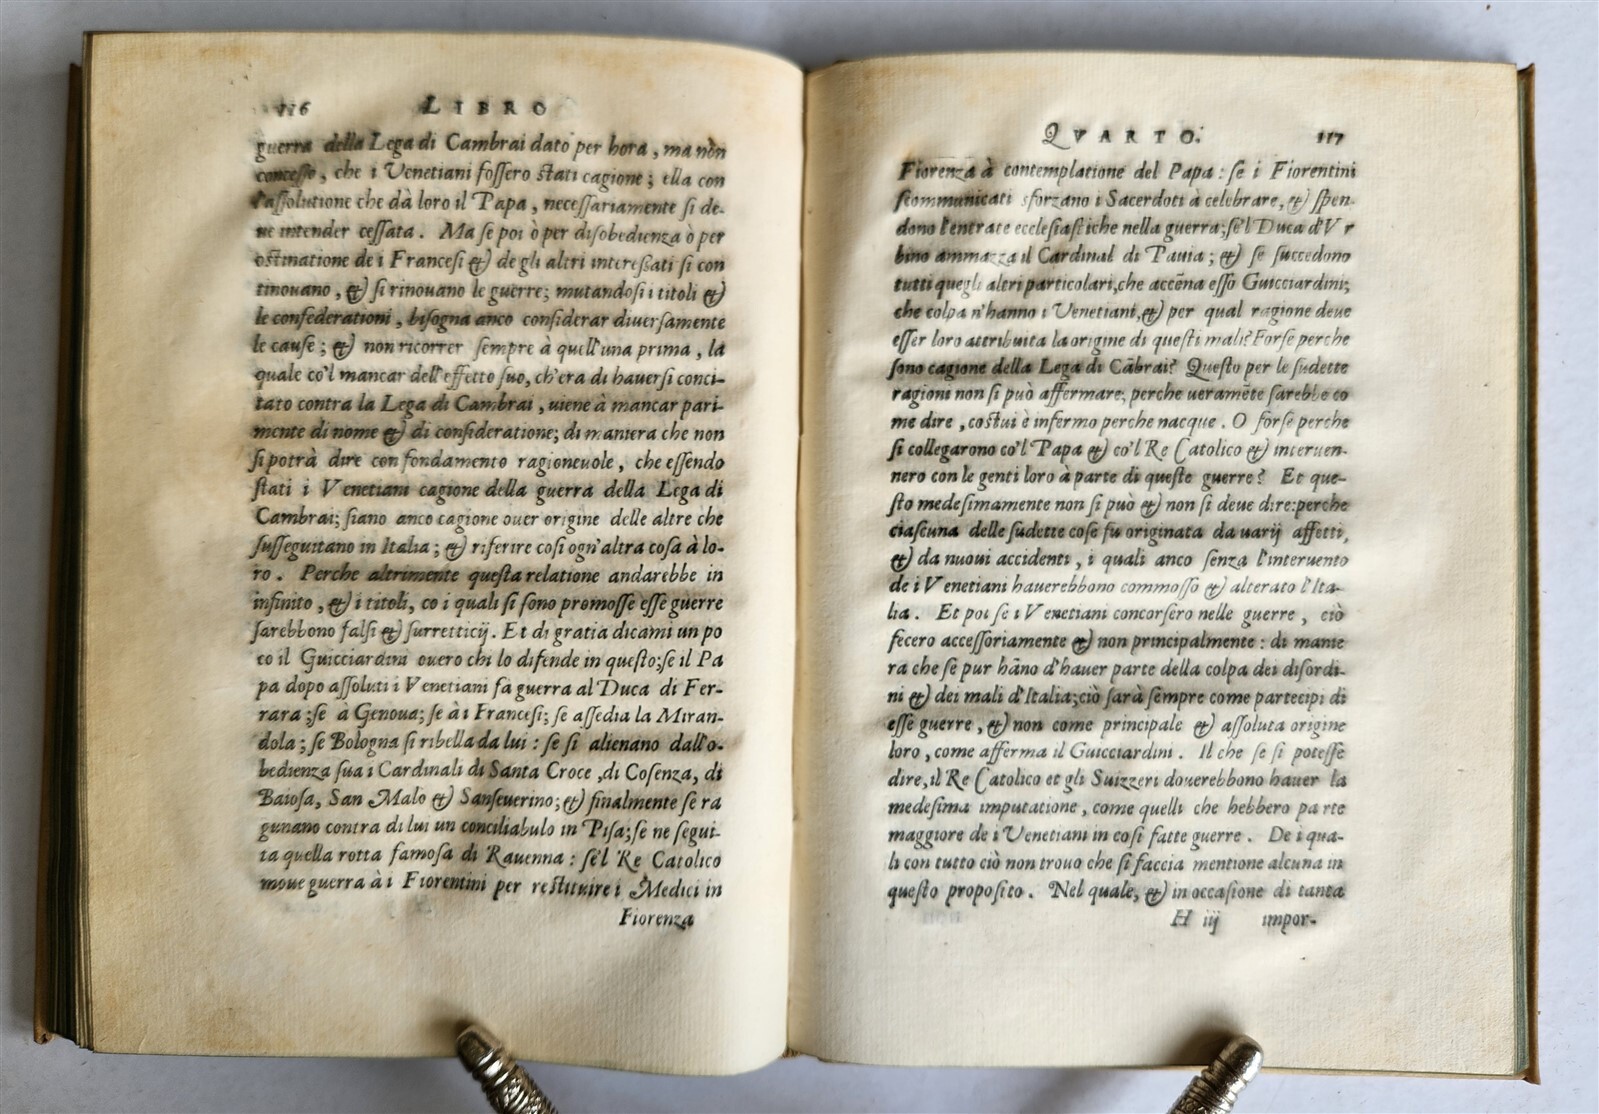 116 LIBRO
guerra della Lega di Cambrai dato per hora, ma nòn
concesso, che i Venetiani fossero stati cagione; ella con
l'assolutione che dà loro il Papa, necessariamente si de-
ue intender cessata. Ma se poi ò per disobedienza ò per
ostinatione de i Francesi & de gli altri interessati si con
tinouano, & si rinouano le guerre; mutandosi i titoli &
le confederationi, bisogna anco considerar diuersamente
le cause; & non ricorrer sempre à quell'una prima, la
quale co'l mancar dell'effetto suo, ch'era di hauersi conci-
tato contra la Lega di Cambrai, uiene à mancar pari-
mente di nome & di consideratione; di maniera che non
si potrà dire con fondamento ragioneuole, che essendo
stati i Venetiani cagione della guerra della Lega di
Cambrai; siano anco cagione ouer origine delle altre che
susseguitano in Italia; & riferire cosi ogn'altra cosa à lo-
ro. Perche altrimente questa relatione andarebbe in
infinito, & i titoli, co i quali si sono promosse esse guerre
sarebbono falsi & surretticij. Et di gratia dicami un po
co il Guicciardini ouero chi lo difende in questo; se il Pa
pa dopo assoluti i Venetiani fa guerra al Duca di Fer-
rara; se à Genoua; se à i Francesi; se assedia la Miran-
dola; se Bologna si ribella da lui: se si alienano dall'o-
bedienza sua i Cardinali di Santa Croce, di Cosenza, di
Baiosa, San Malo & Sanseuerino; & finalmente se ra
gunano contra di lui un conciliabulo in Pisa; se ne segui-
ta quella rotta famosa di Rauenna: se'l Re Catolico
moue guerra à i Fiorentini per restituire i Medici in
Fiorenza
QVARTO. 117
Fiorenza à contemplatione del Papa: se i Fiorentini
scommunicati sforzano i Sacerdoti à celebrare, & spen-
dono l'entrate ecclesiastiche nella guerra; se'l Duca d'Vr
bino ammazza il Cardinal di Pauia; & se succedono
tutti quegli altri particolari, che accēna esso Guicciardini;
che colpa n'hanno i Venetiani, & per qual ragione deue
esser loro attribuita la origine di questi mali? Forse perche
sono cagione della Lega di Cābrai? Questo per le sudette
ragioni non si può affermare, perche ueramēte sarebbe co
me dire, costui è infermo perche nacque. O forse perche
si collegarono co'l Papa & co'l Re Catolico & interuen-
nero con le genti loro à parte di queste guerre? Et que-
sto medesimamente non si può & non si deue dire: perche
ciascuna delle sudette cose fu originata da uarij affetti,
& da nuoui accidenti, i quali anco senza l'interuento
de i Venetiani hauerebbono commosso & alterato l'Ita-
lia. Et poi se i Venetiani concorsero nelle guerre, ciò
fecero accessoriamente & non principalmente: di manie
ra che se pur hāno d'hauer parte della colpa dei disordi-
ni & dei mali d'Italia; ciò sarà sempre come partecipi di
esse guerre, & non come principale & assoluta origine
loro, come afferma il Guicciardini. Il che se si potesse
dire, il Re Catolico et gli Suizzeri douerebbono hauer la
medesima imputatione, come quelli che hebbero parte
maggiore de i Venetiani in cosi fatte guerre. De i qua-
li con tutto ciò non trouo che si faccia mentione alcuna in
questo proposito. Nel quale, & in occasione di tanta
H iij impor-